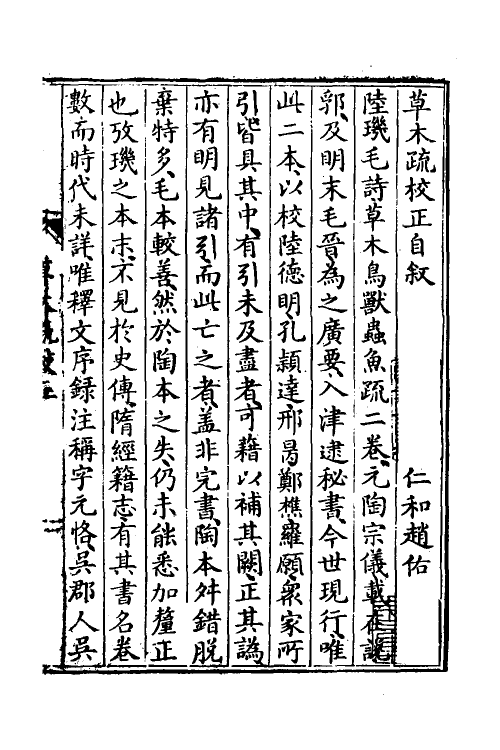 草木疏校正自叙
仁和趙佑
陸璣毛詩草木鳥獸蟲魚疏二卷元陶宗儀載在說
郛及明末毛晉為之廣要入津逮秘書今世現行唯
此二本以校陸德明孔穎達邢昺鄭樵羅願衆家所
引皆具其中有引未及盡者可藉以補其闕正其譌
亦有明見諸引而此亡之者蓋非完書陶本舛錯脱
棄特多毛本較善然於陶本之失仍未能悉加釐正
也攷璣之本末不見於史傳隋經籍志有其書名卷
數而時代未詳唯釋文序録注稱字元恪吳郡人吳
草木疏校正